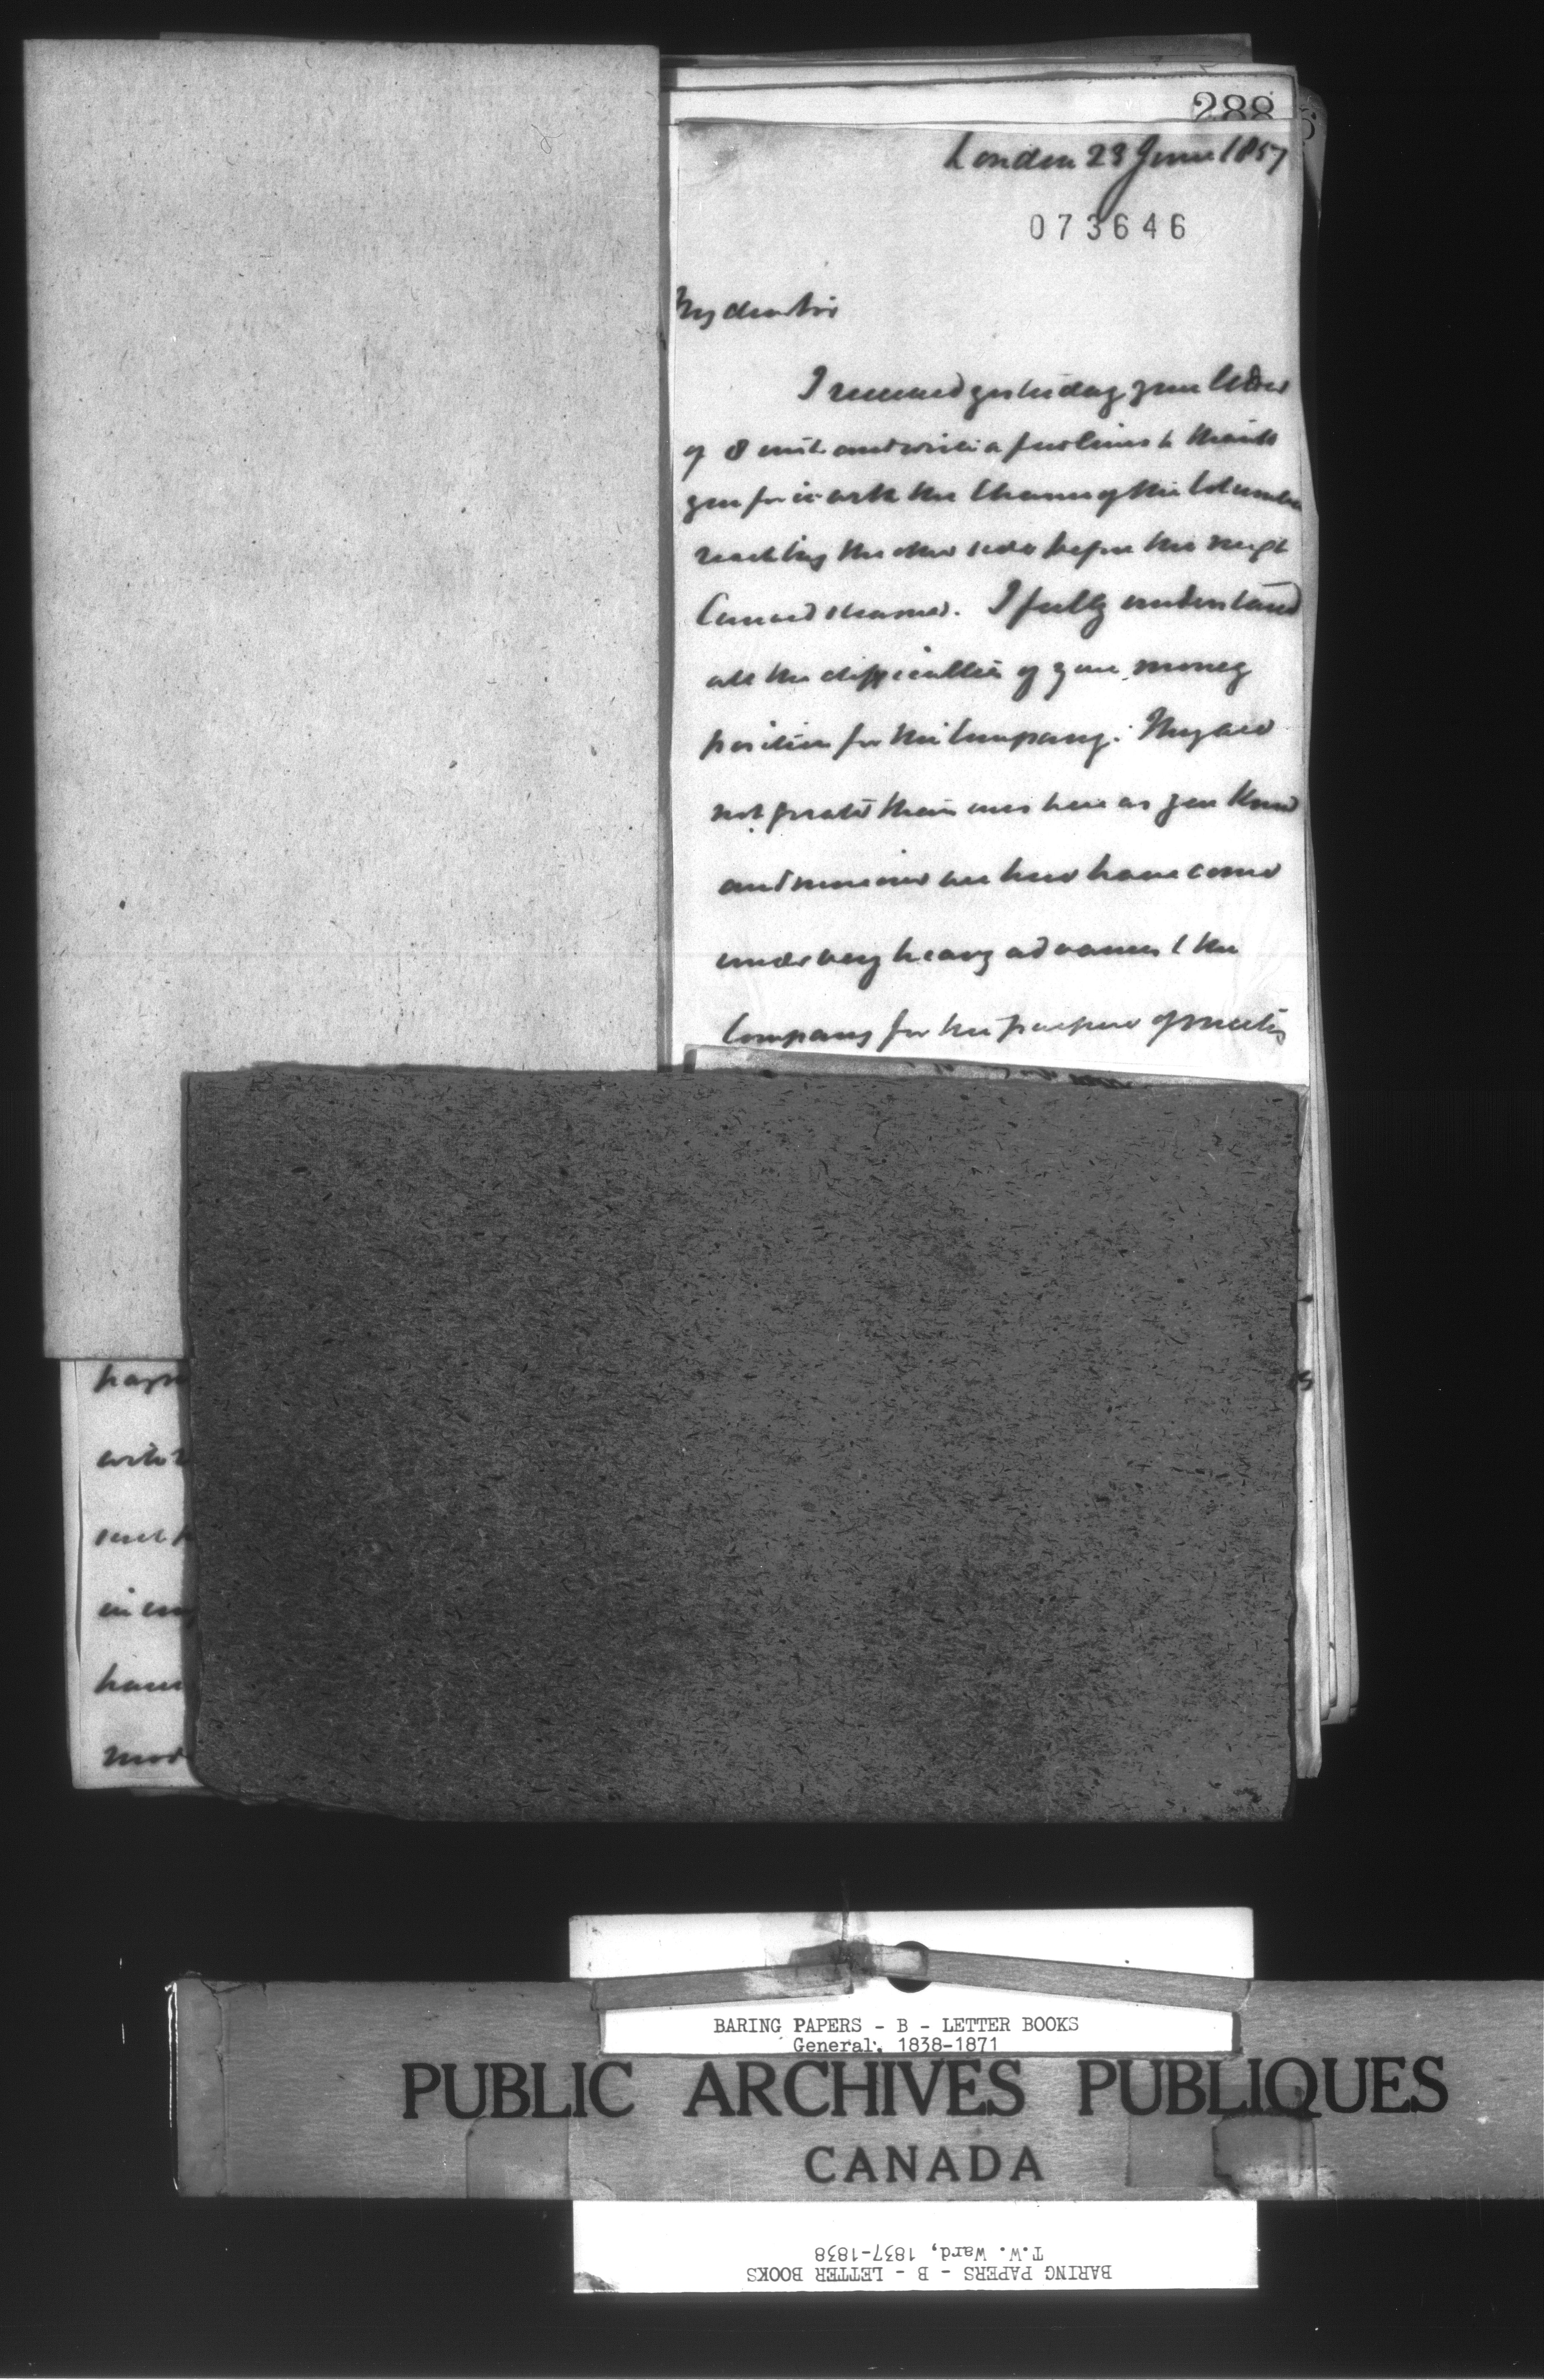 288
London 23 June 1857
073646
My dear Sir
I received yesterday your letter
of 8 inst. and write a few lines to thank
you for it with the chance of the Columbia
reaching the other side before the next
Cunard steamer. I fully understand
all the difficulties of your money
position for the Company. They are
not greater than ours here as you know
and moreover we here have come
under very heavy advances to the
Company for the purpose of meeting
in
have
BARING PAPERS - B - LETTER BOOKS
General, 1838-1871
PUBLIC ARCHIVES PUBLIQUES
CANADA
BARING PAPERS - B - LETTER BOOKS
T.W. Ward, 1837-1838